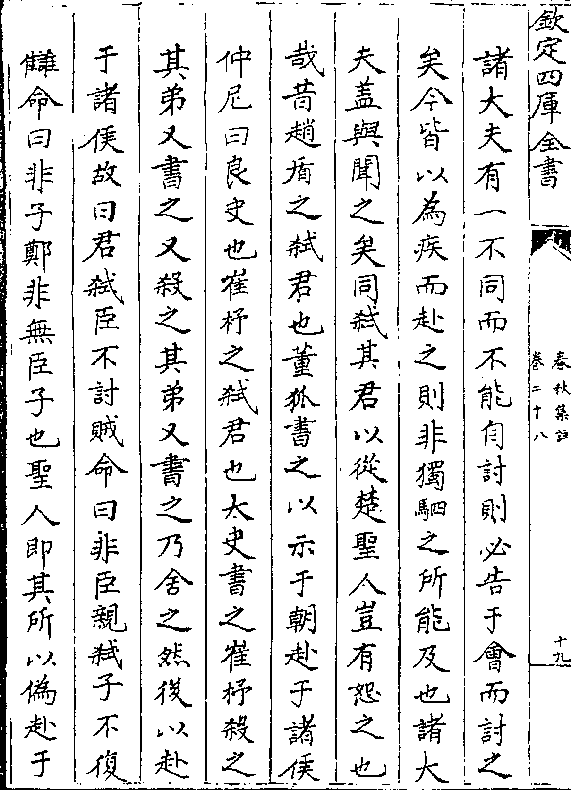 欽定四庫全書
春秋集註
卷二十八
十九
諸大夫有一不同而不能自討則必告于會而討之
矣今皆以為疾而赴之則非獨駟之所能及也諸大
夫蓋與聞之矣同弑其君以從楚聖人豈有恕之也
哉昔趙盾之弑君也董狐書之以示于朝赴于諸侯
仲尼曰良史也崔杼之弑君也太史書之崔杼殺之
其弟又書之又殺之其弟又書之乃舍之然後以赴
于諸侯故曰君弑臣不討賊命曰非臣親弑子不復
讎命曰非子鄭非無臣子也聖人即其所以偽赴于